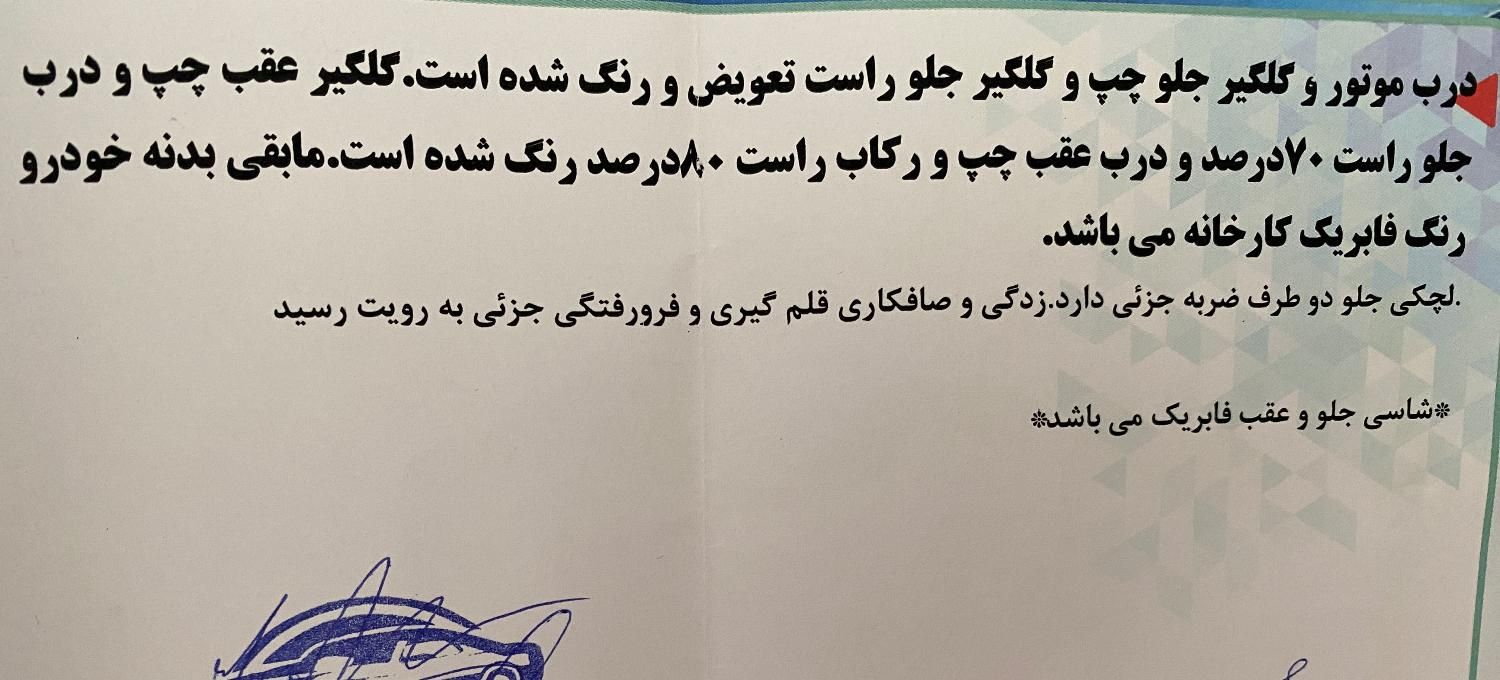 درب موتور و گلگیر جلو چپ و گلگیر جلو راست تعویض و رنگ شده است.گلگیر عقب چپ و درب
جلو راست ۷۰درصد و درب عقب چپ و رکاب راست ۸۰درصد رنگ شده است.مابقی بدنه خودرو
رنگ فابریک کارخانه می باشد.
.لچکی جلو دو طرف ضربه جزئی دارد.زدگی و صافکاری قلم گیری و فرورفتگی جزئی به رویت رسید
*شاسی جلو و عقب فابریک می باشد*